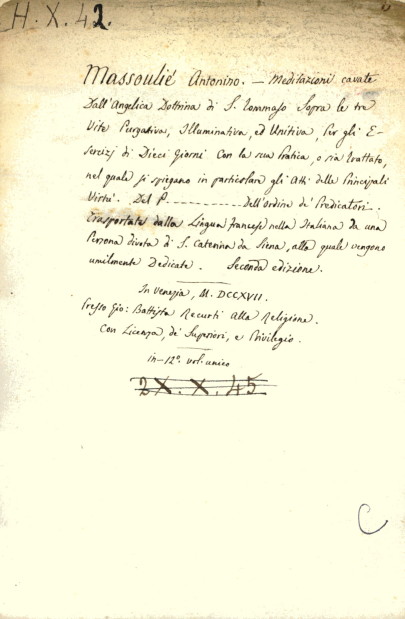 H.X.42.
Massoulié Antonino. — Meditazioni cavate
Dall'Angelica Dottrina di S. Tommaso Sopra le tre
Vite Purgativa, Illuminativa, ed Unitiva, Per gli E-
sercizj di Dieci Giorni Con la sua Pratica, o sia trattato,
nel quale si spiegano in particolare gli Atti delle Principali
Virtù. Del P. __________ Dell'Ordine de' Predicatori.
Trasportate dalla Lingua francese nella Italiana da una
Persona divota di S. Caterina da Siena, alla quale vengono
umilmente Dedicate. Seconda edizione.
In Venezia, M.DCCXVII.
Presso Gio: Battista Recurti alla Religione.
Con Licenza, de' Superiori, e Privilegio.
in-12°. vol. unico
2X.X.45
C